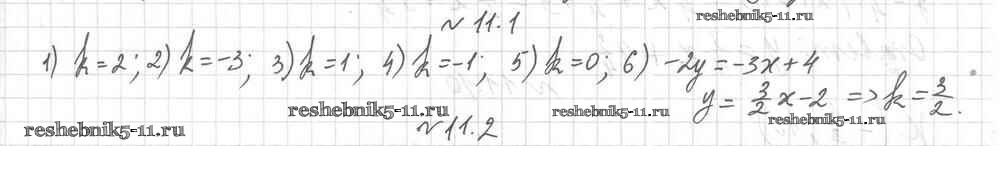 № 11.1
reshebnik5-11.ru
1) k=2; 2) k=-3; 3) k=1; 4) k=-1; 5) k=0; 6) -2y=-3x+4
y = 3/2 x - 2 => k = 3/2.
reshebnik5-11.ru
reshebnik5-11.ru
reshebnik5-11.ru
reshebnik5-11.ru
№ 11.2